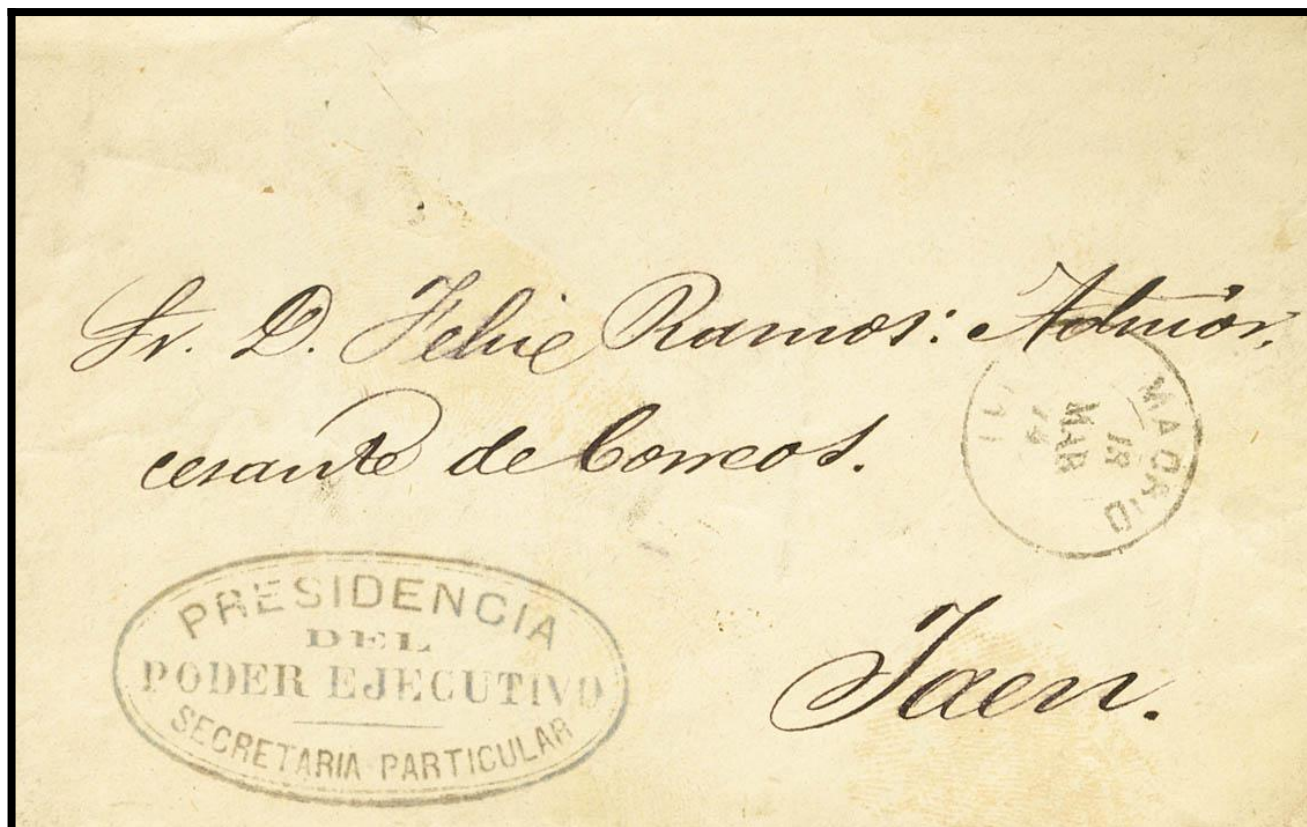 Sr. D. Felix Ramos: Admor.
cesante de Correos.
MADRID
18
MAR
74
PRESIDENCIA
DEL
PODER EJECUTIVO
SECRETARIA PARTICULAR
Jaen.